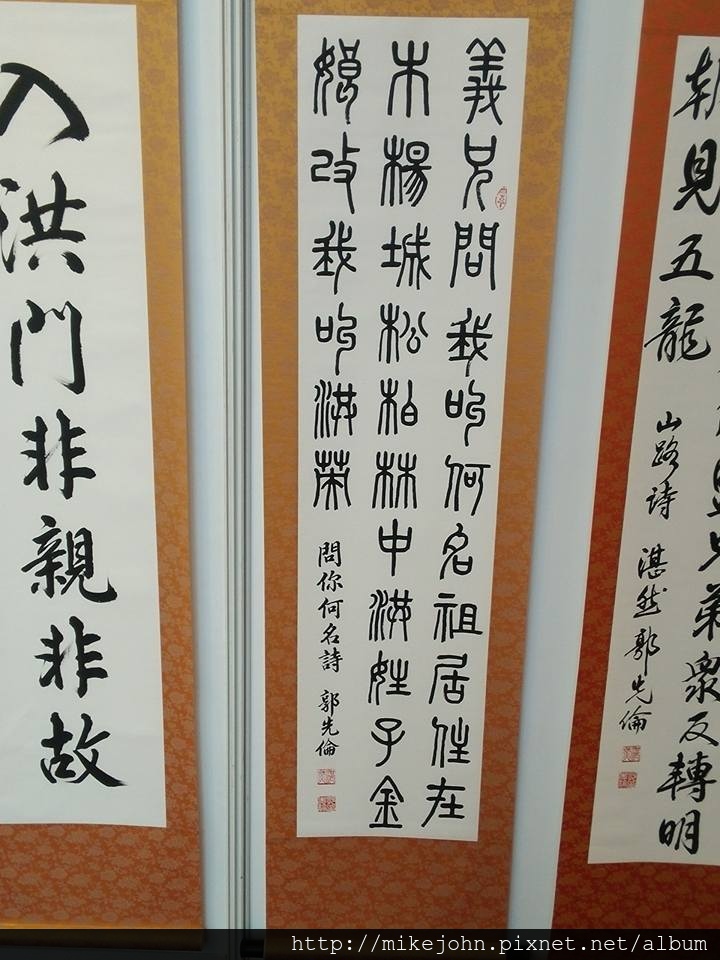 兄弟眾反轉明
朝見五龍 山路詩 湛然郭先倫
義兄問我叫何名祖居住在
木楊城松柏林中洪姓子金
娘改我叫洪榮 問你何名詩 郭先倫
入洪門非親非故
http://mikejohn.pixnet.net/album